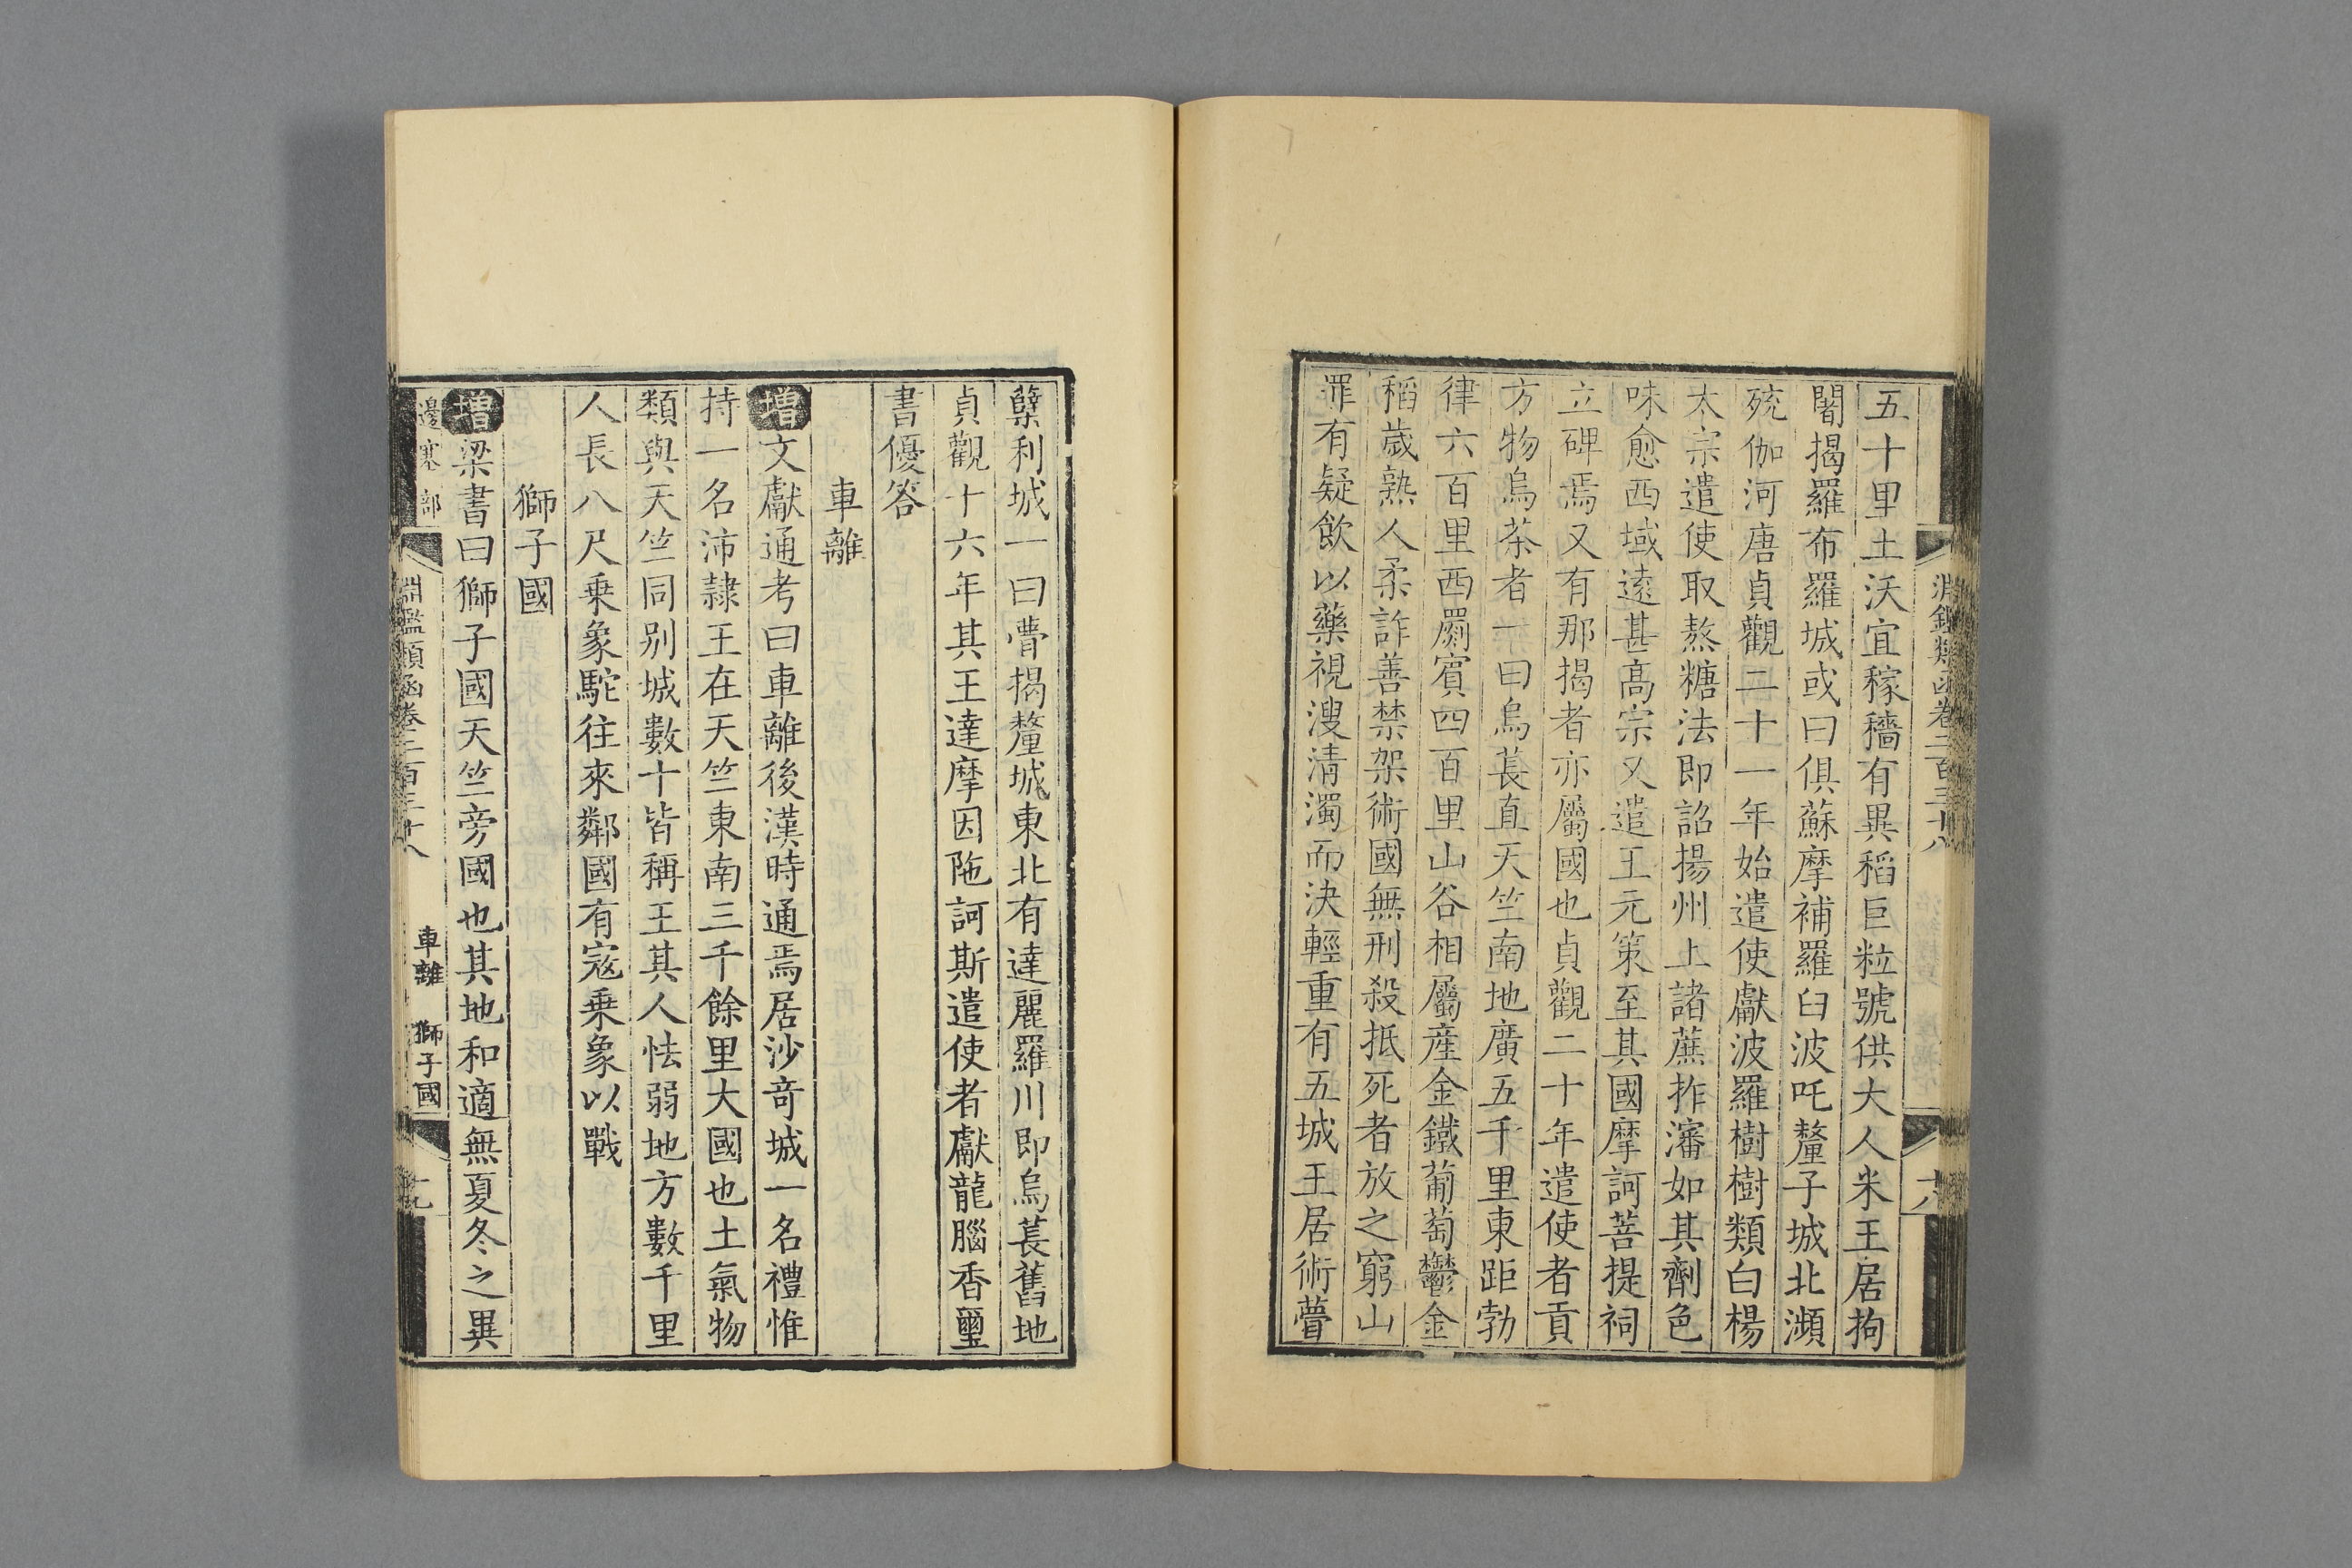 五十里土沃宜稼穡有異稻巨粒號供大人米王居拘
闍揭羅布羅城或曰俱蘇摩補羅曰波吒釐子城北瀕
殑伽河唐貞觀二十一年始遣使獻波羅樹樹類白楊
太宗遣使取熬糖法即詔揚州上諸蔗拃瀋如其劑色
味愈西域遠甚高宗又遣王元策至其國摩訶菩提祠
立碑焉又有那揭者亦屬國也貞觀二十年遣使者貢
方物烏荼者一曰烏萇直天竺南地廣五千里東距勃
律六百里西罽賓四百里山谷相屬產金鐵葡萄鬱金
稻歲熟人柔詐善禁架術國無刑殺抵死者放之窮山
罪有疑飲以藥視溲清濁而決輕重有五城王居術瞢
淵鑑類函卷二百三十八
十八
櫱利城一曰瞢揭釐城東北有達麗羅川即烏萇舊地
貞觀十六年其王達摩因陁訶斯遣使者獻龍腦香璽
書優答
車離
增文獻通考曰車離後漢時通焉居沙奇城一名禮惟
持一名沛隷王在天竺東南三千餘里大國也土氣物
類與天竺同别城數十皆稱王其人怯弱地方數千里
人長八尺乗象駝往來鄰國有寇乗象以戰
獅子國
增梁書曰獅子國天竺旁國也其地和適無夏冬之異
邊塞部
淵鑑類函卷二百三十八
車離 獅子國
十九